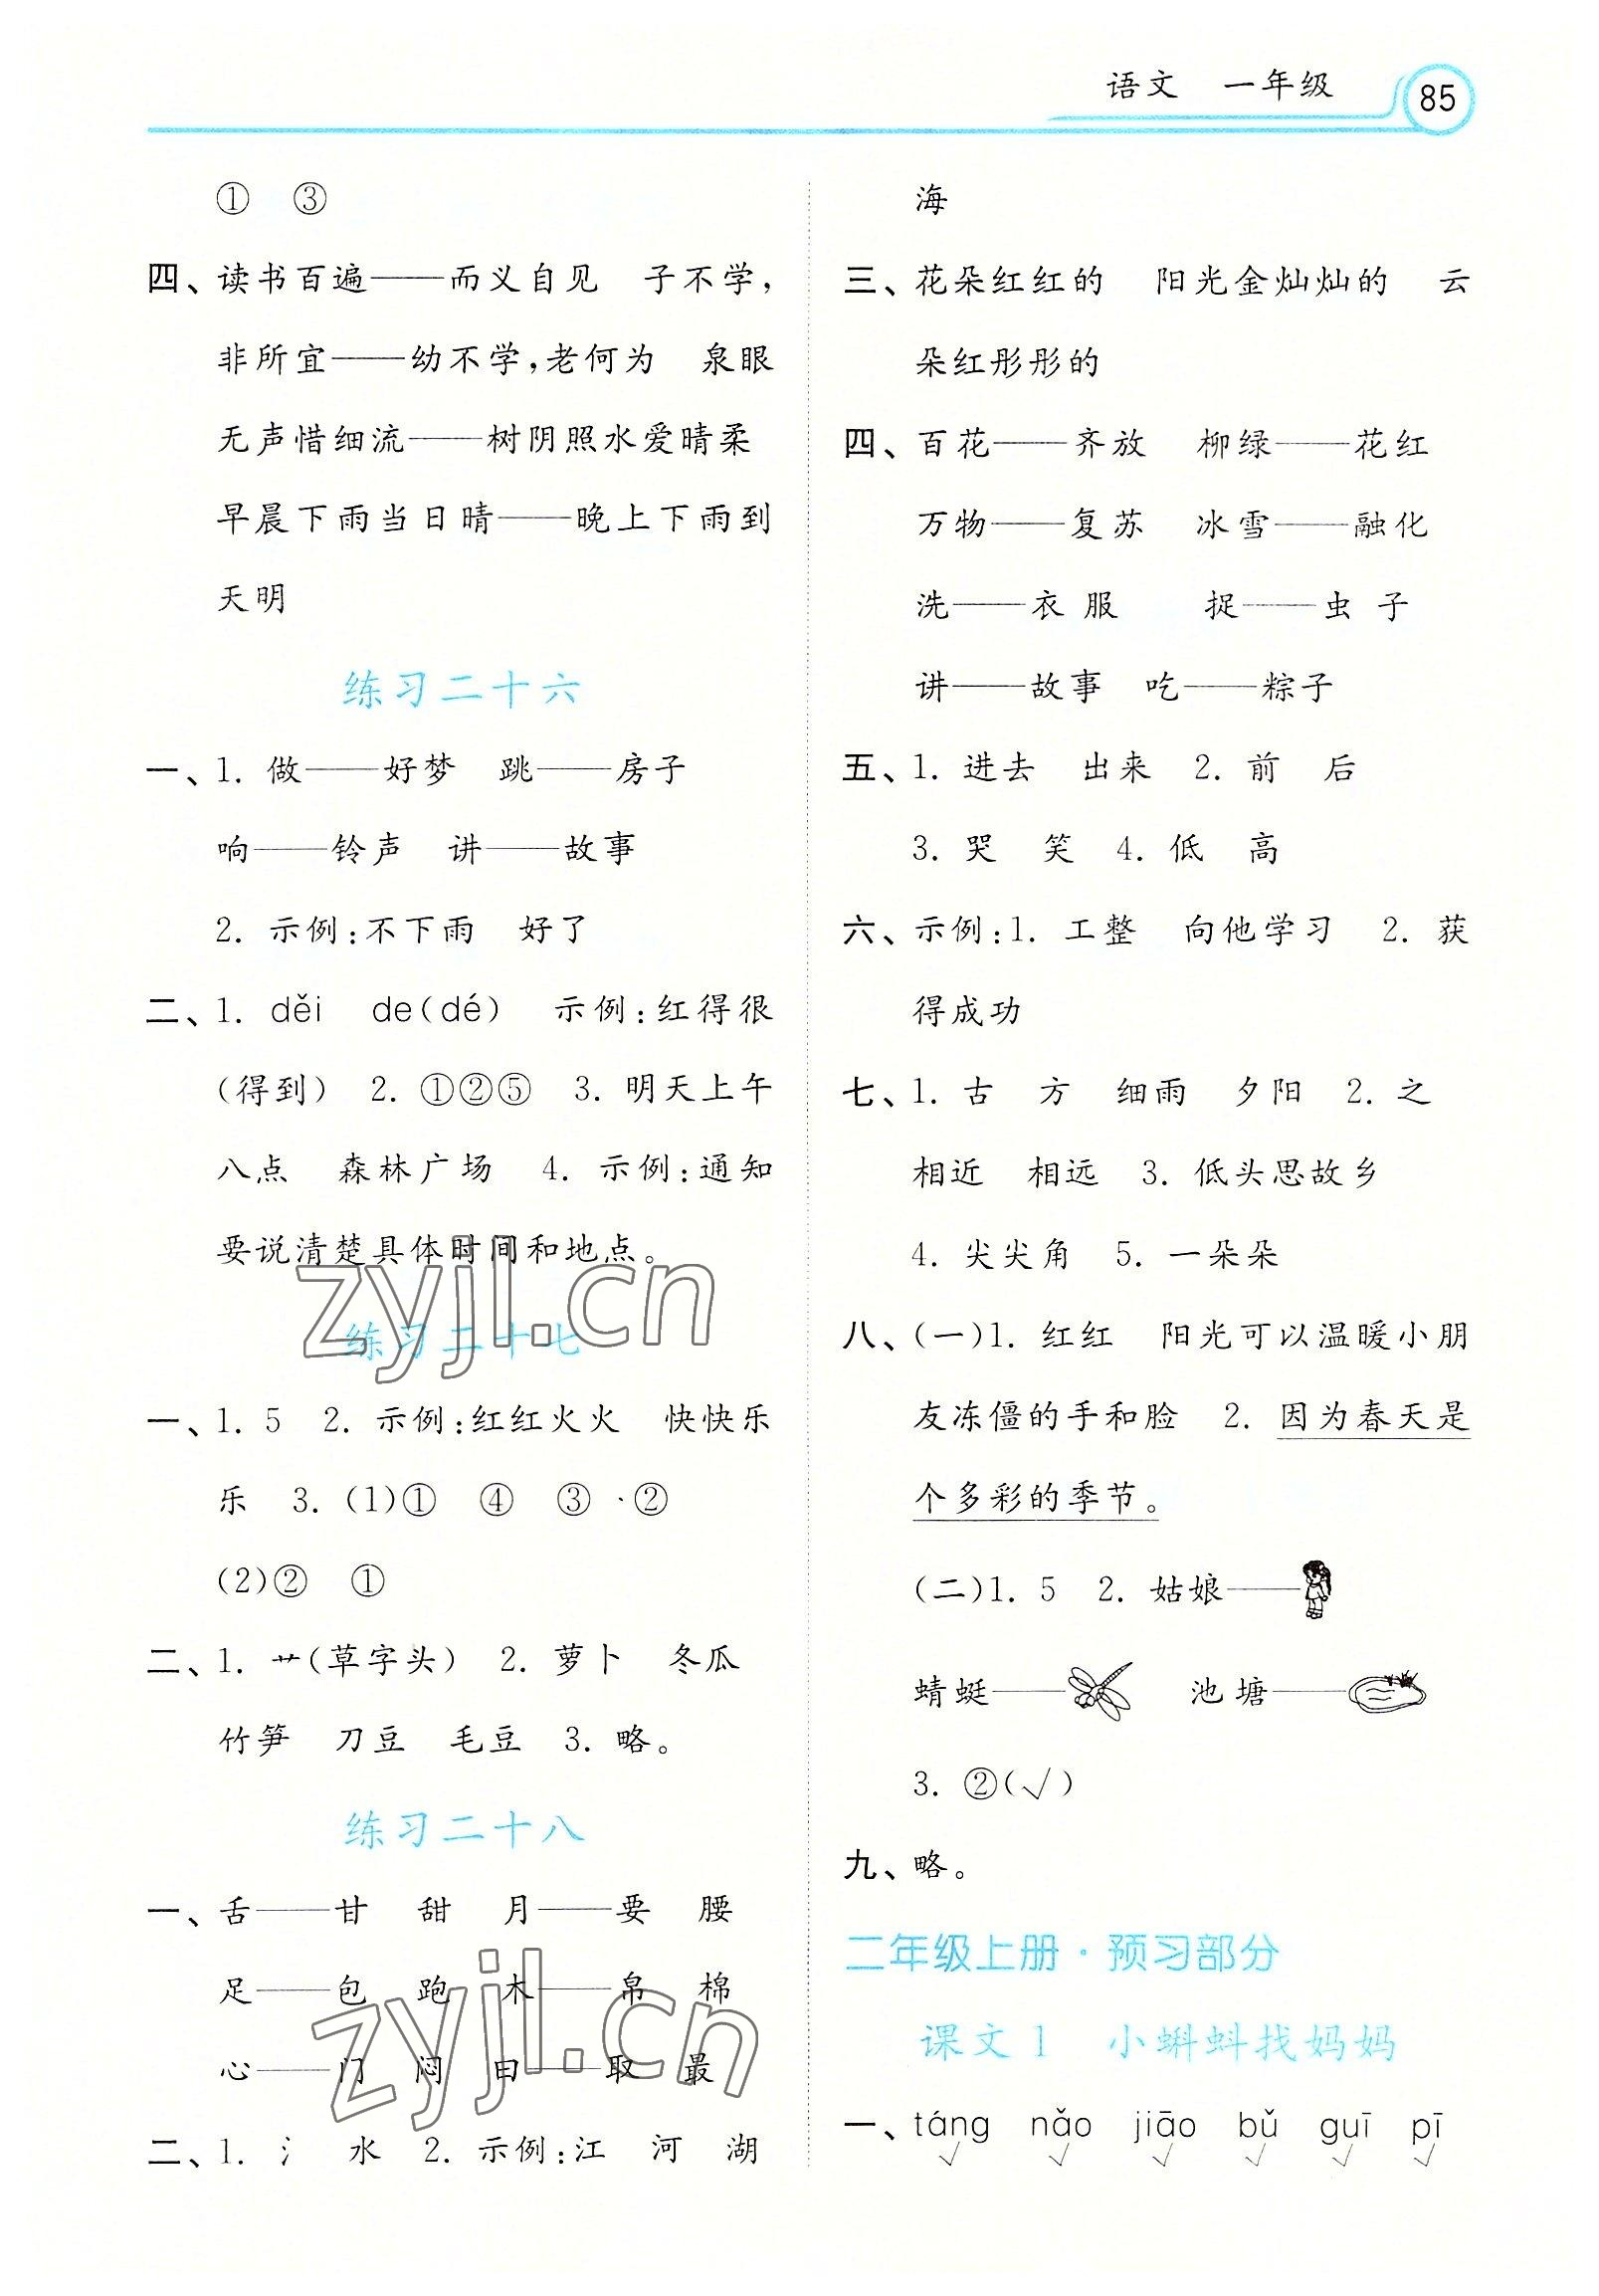 语文 一年级 85
① ③
四、读书百遍——而义自见 子不学，
非所宜——幼不学，老何为 泉眼
无声惜细流——树阴照水爱晴柔
早晨下雨当日晴——晚上下雨到
天明
练习二十六
一、1. 做——好梦 跳——房子
响——铃声 讲——故事
2. 示例：不下雨 好了
二、1. děi de(dé) 示例：红得很
(得到) 2. ①②⑤ 3. 明天上午
八点 森林广场 4. 示例：通知
要说清楚具体时间和地点。
zyjl.cn
练习二十七
一、1. 5 2. 示例：红红火火 快快乐
乐 3. (1)① ④ ③ ②
(2)② ①
二、1. 艹(草字头) 2. 萝卜 冬瓜
竹笋 刀豆 毛豆 3. 略。
练习二十八
一、舌——甘 甜 月——要 腰
足——包 跑 木——帛 棉
zyjl.cn
心——门 闷 曰——取 最
二、1. 氵 水 2. 示例：江 河 湖
海
三、花朵红红的 阳光金灿灿的 云
朵红彤彤的
四、百花——齐放 柳绿——花红
万物——复苏 冰雪——融化
洗——衣服 捉——虫子
讲——故事 吃——粽子
五、1. 进去 出来 2. 前 后
3. 哭 笑 4. 低 高
六、示例：1. 工整 向他学习 2. 获
得成功
七、1. 古 方 细雨 夕阳 2. 之
相近 相远 3. 低头思故乡
4. 尖尖角 5. 一朵朵
八、(一)1. 红红 阳光可以温暖小朋
友冻僵的手和脸 2. 因为春天是
个多彩的季节。
(二)1. 5 2. 姑娘——
蜻蜓—— 池塘——
3. ②(√)
九、略。
二年级上册·预习部分
课文1 小蝌蚪找妈妈
一、táng nǎo jiāo bǔ guī pī
√ √ √ √ √ √